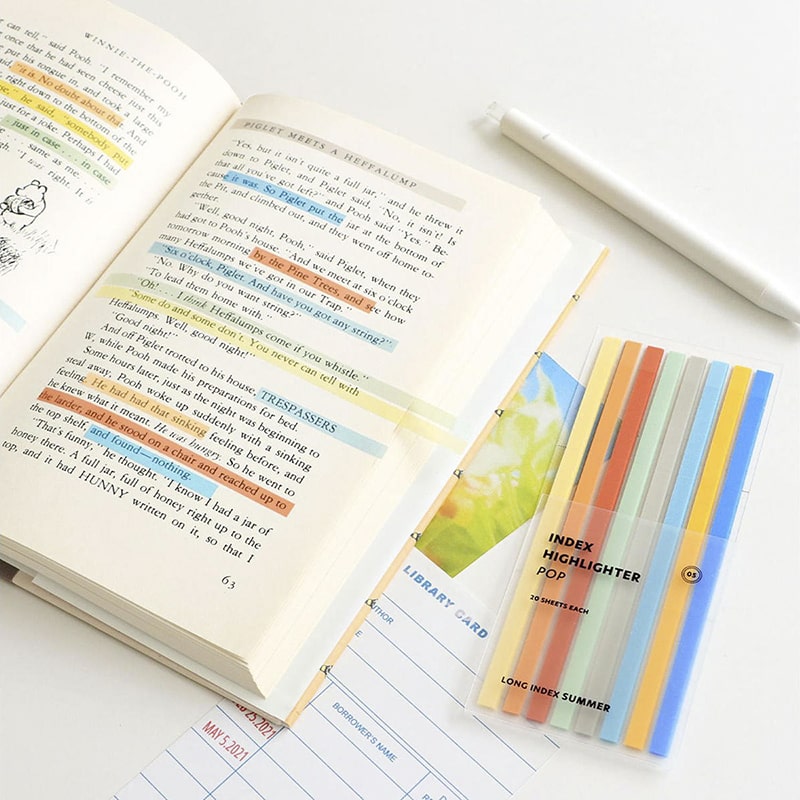 WINNIE-THE-POOH
can tell," said Pooh. "I remember
once that he had seen cheese just this
put his tongue in, and took a large
"it is. No doubt about that. And
right down to the bottom of the
he said, "somebody put
just for a joke. Perhaps I had
just in case . . . in case
same as me.
right. It is
PIGLET MEETS A HEFFALUMP
"Yes, but it isn't quite a full jar," and he threw it
down to Piglet, and Piglet said, "No, it isn't! Is
that all you've got left?" and Pooh said "Yes." Be-
cause it was. So Piglet put the jar at the bottom of
the Pit, and climbed out, and they went off home to-
gether.
"Well, good night, Pooh," said Piglet, when they
had got to Pooh's house. "And we meet at six o'clock
tomorrow morning by the Pine Trees, and see how
many Heffalumps we've got in our Trap."
"Six o'clock, Piglet. And have you got any string?"
"No. Why do you want string?"
"To lead them home with."
"Oh! . . . I think Heffalumps come if you whistle."
"Some do and some don't. You never can tell with
Heffalumps. Well, good night!"
"Good night!"
And off Piglet trotted to his house, TRESPASSERS
W, while Pooh made his preparations for bed
Some hours later, just as the night was beginning to
steal away, Pooh woke up suddenly with a sinking
feeling. He had had that sinking feeling before, and
he knew what it meant. He was hungry. So he went to
the larder, and he stood on a chair and reached up to
the top shelf, and found—nothing.
"That's funny," he thought. "I know I had a jar of
honey there. A full jar, full of honey right up to the
top, and it had HUNNY written on it, so that I
63
LIBRARY CARD
AUTHOR
BORROWER'S NAME
MAY 5.2021
INDEX
HIGHLIGHTER
POP
05
20 SHEETS EACH
LONG INDEX SUMMER